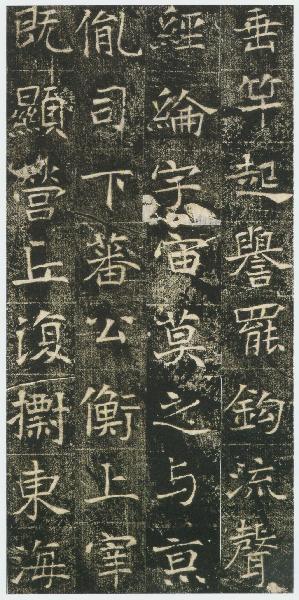 垂竿起譽罷鈎流聲
經綸宇宙莫之与京
胤司下蕃公衡上宰
既顯營丘復擿東海